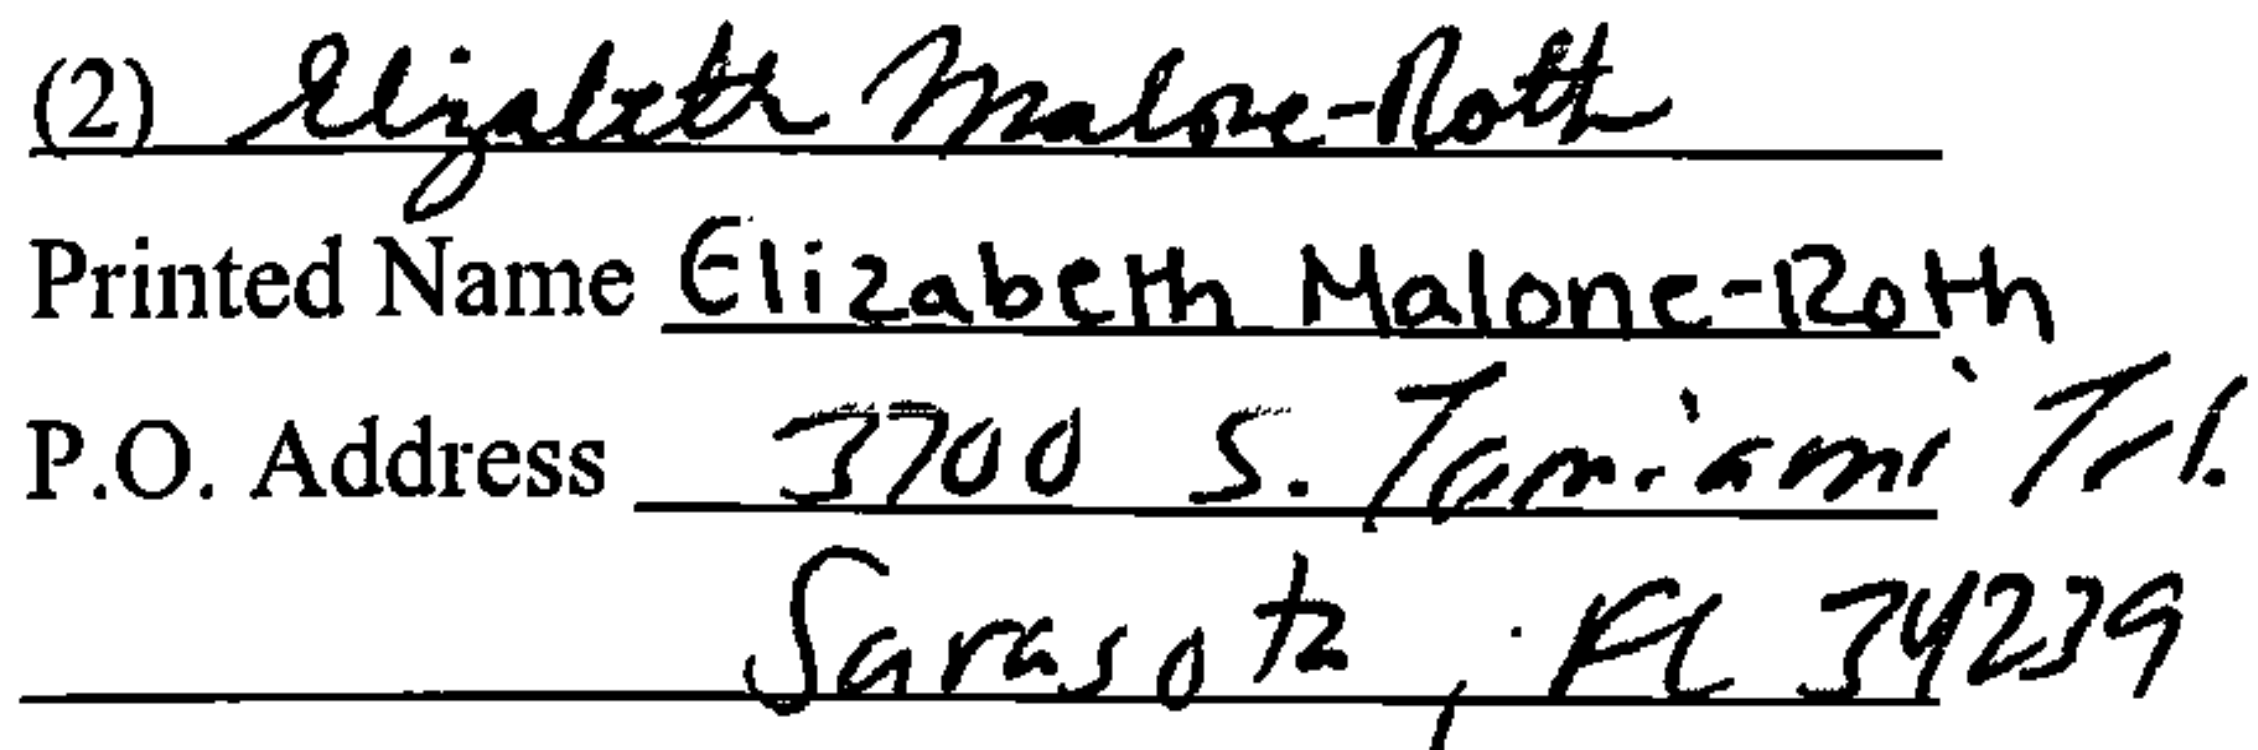 (2) Elizabeth Malone-Roth
Printed Name Elizabeth Malone-Roth
P.O. Address 3700 S. Tamiami Trl.
Sarasota, FL 34239